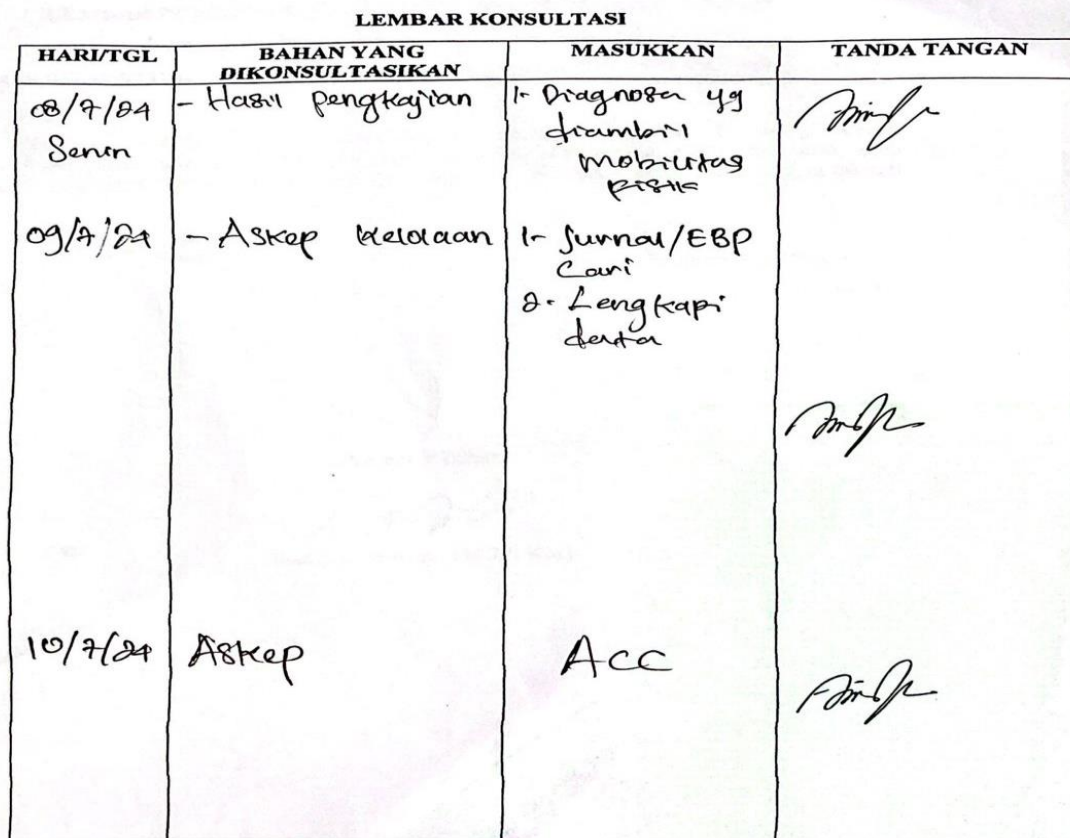 LEMBAR KONSULTASI
HARI/TGL BAHAN YANG DIKONSULTASIKAN MASUKKAN TANDA TANGAN
08/7/24 - Hasil pengkajian 1- Diagnosa yg
Senin diambil
mobilitas
fisik
09/7/24 - Askep kelolaan 1- Jurnal/EBP
Cari
2- Lengkapi
data
10/7/24 Askep ACC